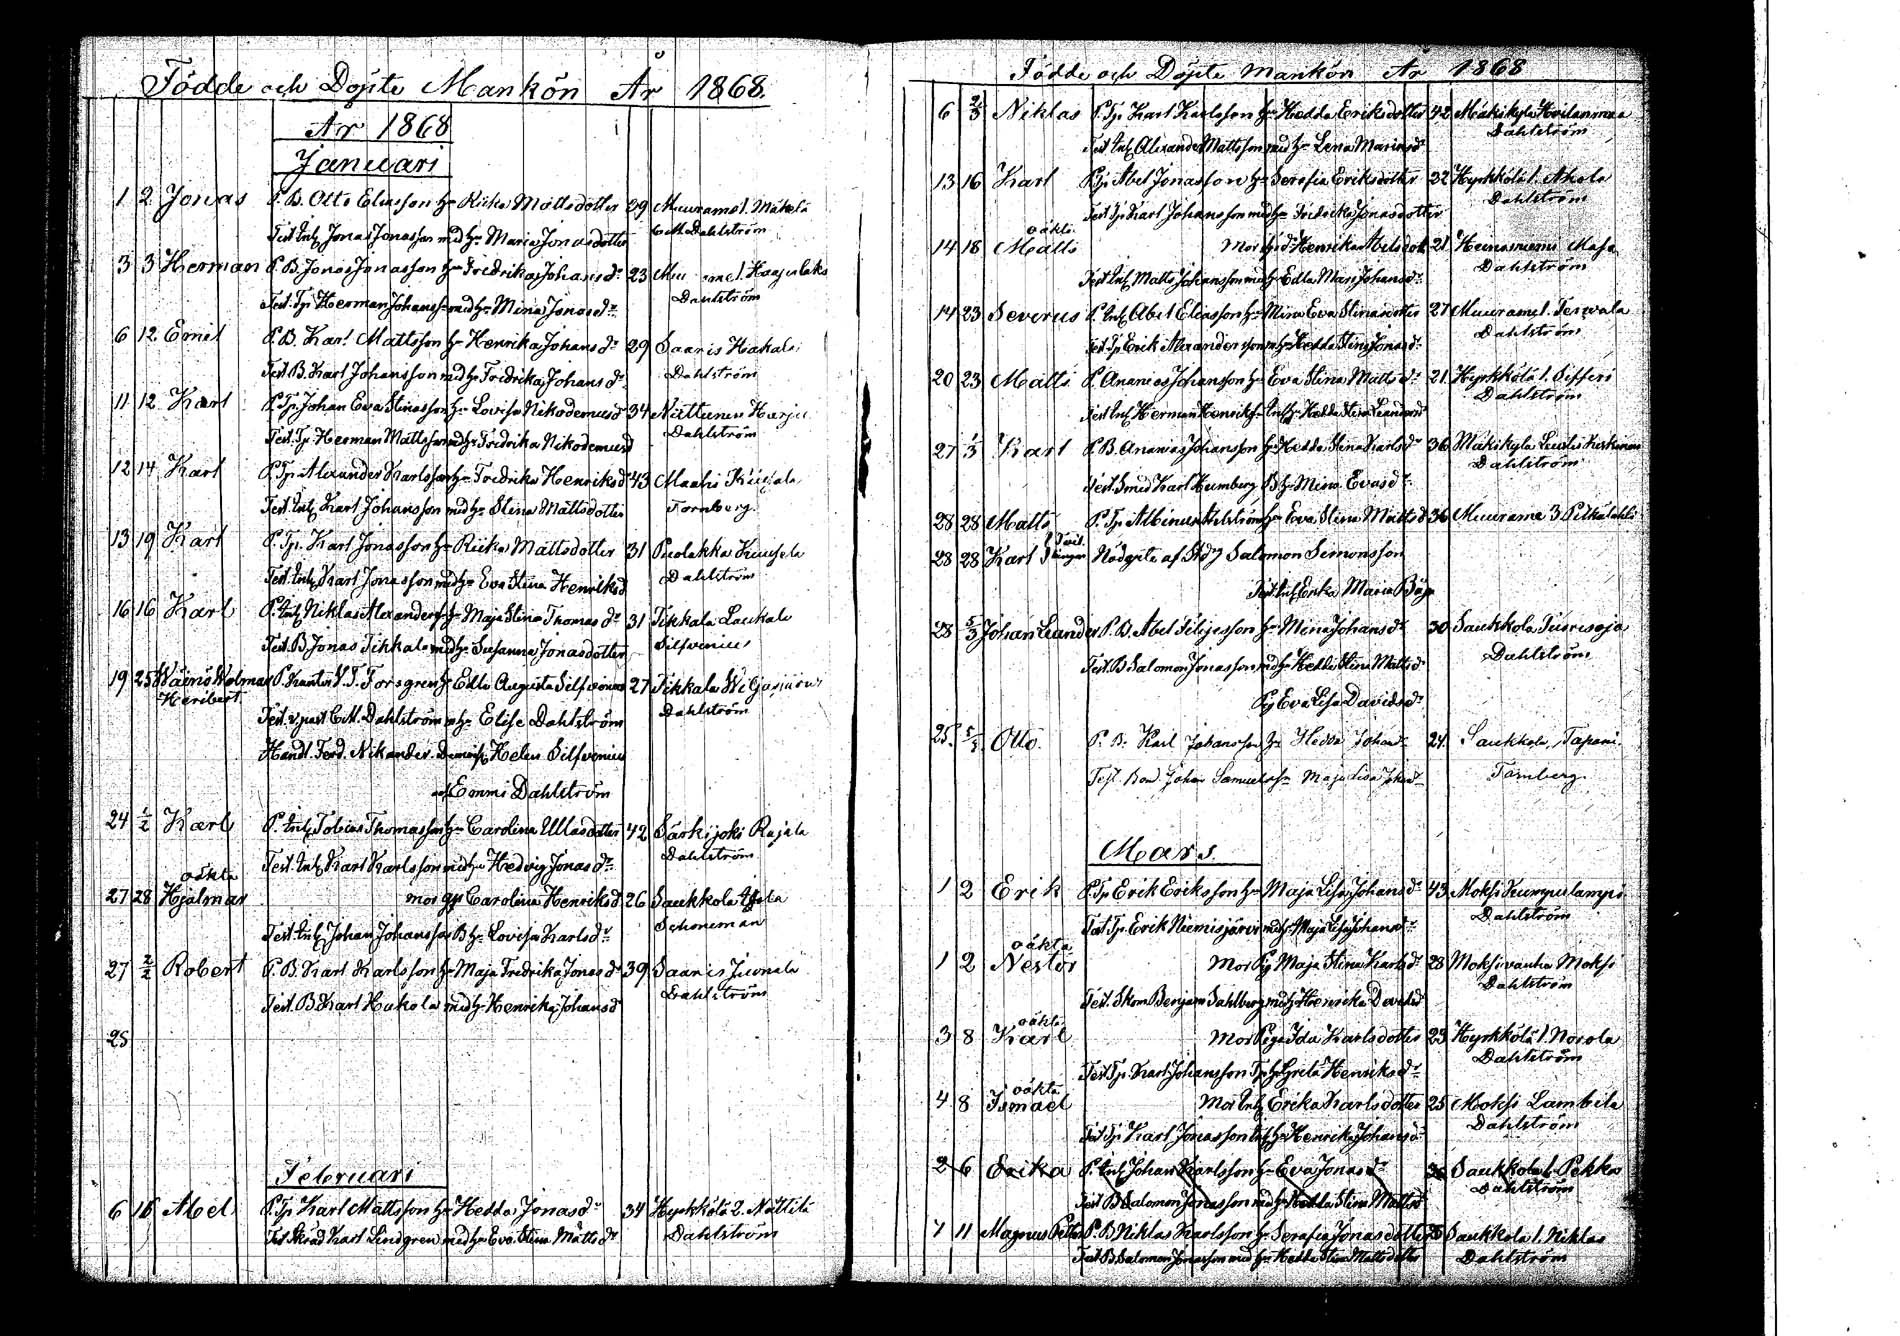 Födde och Döpte Mankön År 1868.
År 1868
Januari
1 2 Jonas P. B. Otto Eliasson Hu Rika Mattsdotter 39 Muurame 1. Mäkelä
Test. Inh. Jonas Jonasson med Hu Maria Jonasdotter C.M. Dahlström
3 3 Herman P. B. Jonas Jonasson Hu Fredrika Johansdr 23
Test. Tp. Herman Johansson med Hu Mina Jonasdr Dahlström
6 12 Emil P. B. Karl Mattsson Hu Henrika Johansdr 29 Saaris Hakala
Test. B. Karl Johansson med Hu Fredrika Johansdr Dahlström
11 12 Karl P. Tp. Johan Eva Stinasson Hu Lovisa Nikodemusdr 34 Niittunen Harju
Test. Tp. Herman Mattsson med Hu Fredrika Nikodemusd Dahlström
12 14 Karl P. Tp. Alexander Karlsson Hu Fredrika Henriksd 43 Maahi
Test. Inh. Karl Johansson med Hu Stina Mattsdotter Tornberg
13 19 Karl P. Tp. Karl Jonasson Hu Rika Mattsdotter 31 Puolakka Kuusela
Test. Inh. Karl Jonasson med Hu Eva Stina Henriksd Dahlström
16 16 Karl P. Inh. Niklas Alexandersson Hu Maja Stina Thomasdr 31 Tikkala Laukala
Test. B. Jonas Tikkala med Hu Susanna Jonasdotter Silfvenius
19 25 Wäinö Wolmar P. Kantor V. T. Forsgren Hu Edla Augusta Silfvenius 27 Tikkala
Heribert
Test. v. past C.M. Dahlström m Hu Elise Dahlström Dahlström
Handl. Ferd. Nikander. Demois. Helen Silfvenius
och Emmi Dahlström
24 1/2 Karl P. Inh. Tobias Thomasson Hu Carolina Ullasdotter 42 Särkijoki Rajala
Test. Inh. Karl Karlsson med Hu Hedvig Jonasdr Dahlström
oäkta
27 28 Hjalmar mor Carolina Henriksd 26 Saukkola
Test. Inh. Johan Johansson B Hu Lovisa Karlsdr Schoneman
27 2/2 Robert P. B. Karl Karlsson Hu Maja Fredrika Jonasdr 39 Saaris Juonala
Test. B. Karl Hakola med Hu Henrika Johansd Dahlström
25
Februari
6 16 Abel P. Tp Karl Mattsson Hu Hedda Jonasdr 34 Hyrkkölä 2. Nättilä
Test Skräd Karl Lindgren med Hu Eva Stina Mattsdr Dahlström
Födde och Döpte mankön År 1868
6 2/3 Niklas P. Tp. Karl Karlsson Hu Hedda Eriksdotter 42 Mäkikylä
Dahlström
Test Inh Alexander Mattsson med Hu Lena Mariasdr
13 16 Karl P. Tp Abel Jonasson Hu Serafia Eriksdotter 22 Hyrkkölä 1. Ahola
Test. Tp Karl Johansson med Hu Fredrika Jonasdotter Dahlström
oäkta
14 18 Matts mor Henrika Abelsdotr 21
Test Inh Matts Johansson med Hu Edla Mari Johansdr Dahlström
14 23 Severus P. Inh Abel Eliasson Hu Mina Eva Stinasdotter 27 Muurame 1. Tervala
Test. Tp Erik Alexandersson m Hu Hedda Stina Jonasdr Dahlström
20 23 Matts P. Ananias Johansson Hu Eva Stina Mattsdr 21 Hyrkkölä 1. Sifferi
Test Inh Herman Henriksson Inh Hu Hedda Stina Leandersdr Dahlström
27 1/3 Karl P. B. Ananias Johansson Hu Hedda Stina Karlsdr 36 Mäkikylä
Dahlström
Test. Smed Karl Humberg B Hu Mina Evasdr
28 28 Matts P. Tp. Albinus Ahlström Hu Eva Stina Mattsd 36 Muurame 3
28 28 Karl Tvillingar Nödöpte af Salomon Simonsson
Test. Inh Erika Maria
28 5/3 Johan Leander P. B. Abel Filipsson Hu Mina Johansdr 30 Saukkola
Test. B Salomon Jonasson med Hu Hedda Stina Mattsdr Dahlström
Pig Eva Lisa Davidsdr
25. 5/3 Otto. P. B. Karl Johansson Hu Hedda Johansdr 24. Saukkola, Tapani.
Test. Bon. Johan Samuelsson Maja Lisa Johansdr Tornberg.
Mars.
1 2 Erik P. Tp Erik Eriksson Hu Maja Lisa Johansdr 43 Moksi Kumpulampi
Test Tp. Erik Niemisjärvi med Hu Maja Lisa Johansdr Dahlström
oäkta
1 2 Nestor Mor Pig Maja Stina Karlsdr 28 Moksi
Test. Skom Benjam Sahlberg med Hu Henrika Davidsd Dahlström
oäkta
3 8 Karl Mor Piga Ida Karlsdotter 23 Hyrkkölä 1. Norola
Test Tp. Karl Johansson Tp Hu Greta Henriksdr Dahlström
oäkta
4 8 Ismael Mor Inh Erika Karlsdotter 25 Moksi Lambila
Test Tp Karl Jonasson Inh Hu Henrika Johansdr Dahlström
2 6 Erika P. Inh Johan Karlsson Hu Eva Jonasdr 36 Saukkola 1. Pekka
Test B Salomon Jonasson med Hu Hedda Stina Mattsdr Dahlström
7 11 Magnus Petter P. B Niklas Karlsson Hu Serafia Jonasdotter 28 Saukkola 1. Niklas
Test. B. Salomon Jonasson med Hu Hedda Stina Mattsdotter Dahlström